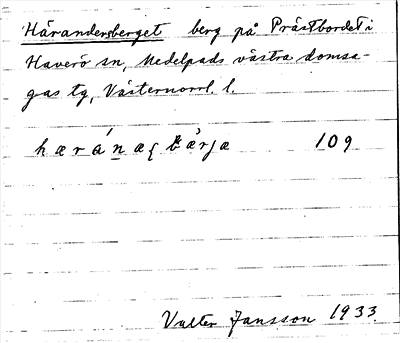 Härandersberget berg på Prästbordet i
Haverö sn, Medelpads västra domsa-
gas tg, Västernorrl. l.
109
Valter Jansson 1933